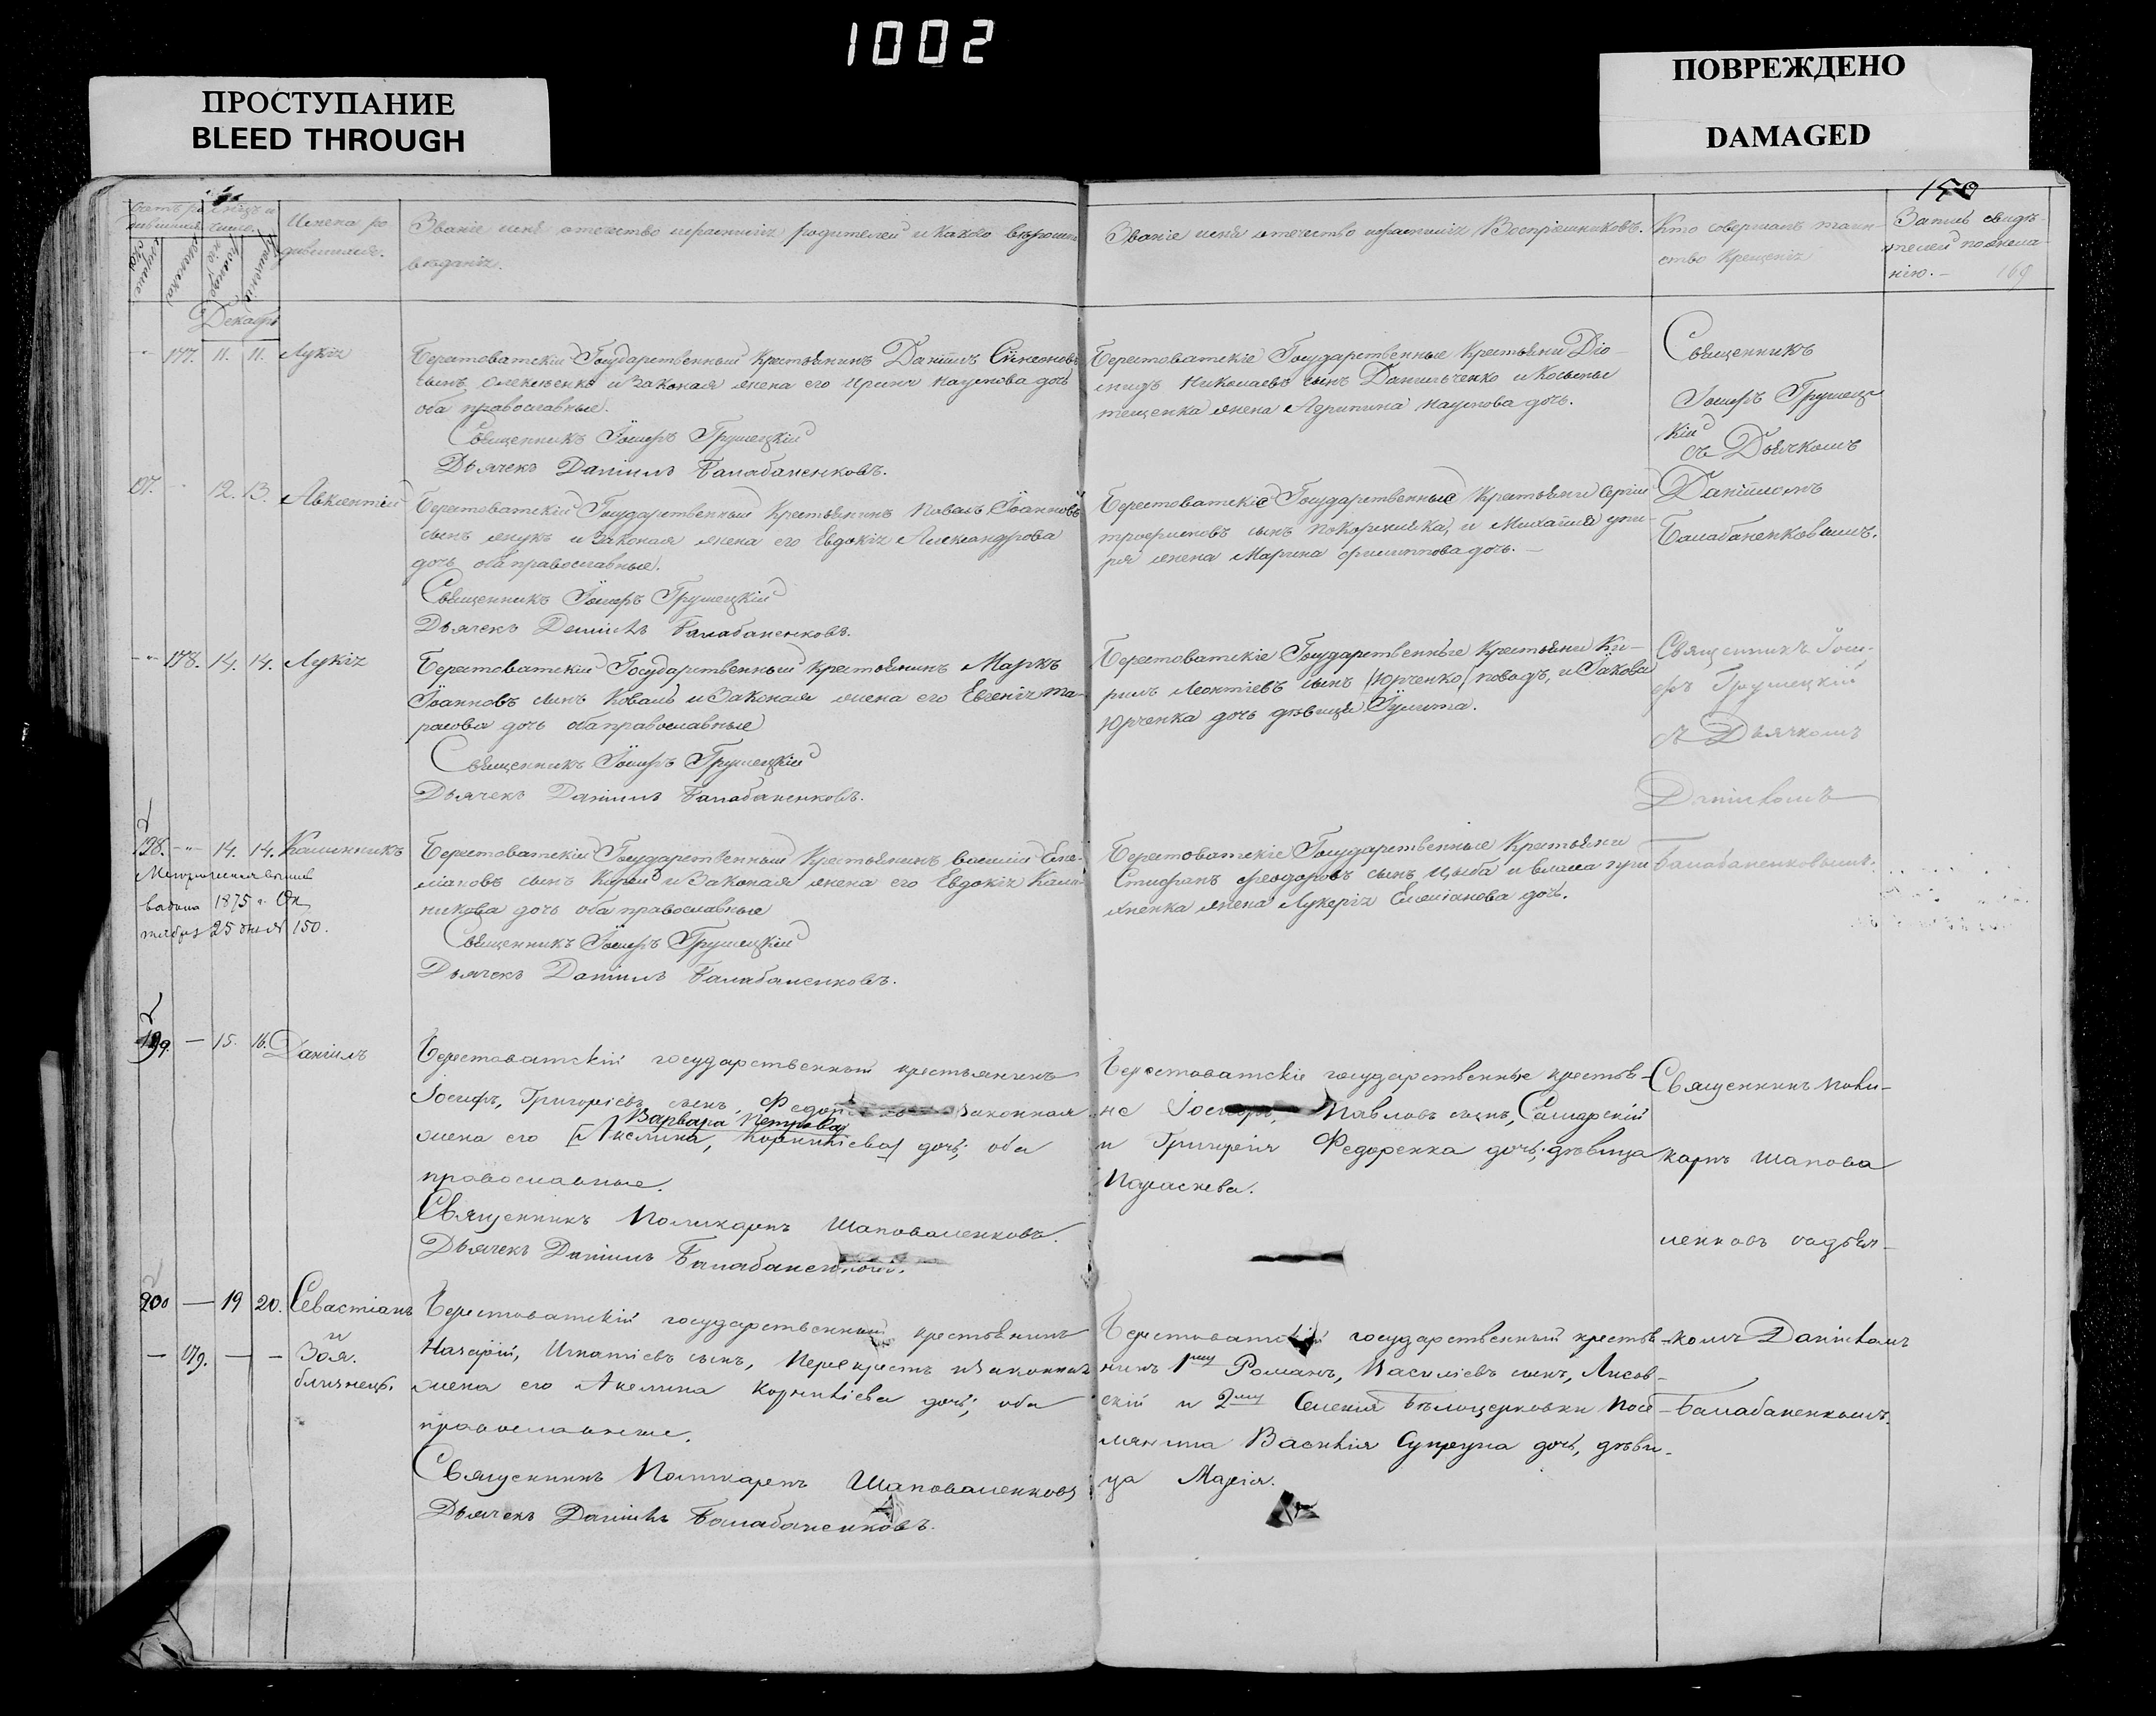 1002
ПРОСТУПАНИЕ
BLEED THROUGH
ПОВРЕЖДЕНО
DAMAGED
Имена ро
дившихся.
Званіе имя отечество
родителей и какого вѣроиспо
вѣданія.
Званіе имя отечество
Воспріемниковъ.
Кто совершалъ таин-
ство Крещенія
Запись свидѣ-
телей по желa-
нію. — 169
Декабрь
177. 11. 11. Лукія
Берестоватскій Государственный Крестьянинъ Даніилъ Симеоновъ
сынъ, Олексѣенко и Законая жена его Ирина Наумова дочь
оба православные.
Священникъ Іосифъ Грушецкій
Дьячекъ Даніилъ Балабаненковъ.
Берестоватскіе Государственные Крестьяни Діо-
мидъ Николаевъ сынъ Данильченко и Косьмы
тещенка жена Агрипина Наумова дочь.
Священникъ
Іосифъ Грушец
кій
съ Дьячкомъ
Даніиломъ
Балабаненковымъ.
12. 13. Авксентій
Берестоватскій Государственный Крестьянинъ Павелъ Іоанновъ
сынъ Жукъ и Законая жена его Евдокія Александрова
дочь оба православные.
Священникъ Іосифъ Грушецкій
Дьячекъ Даніилъ Балабаненковъ.
Берестоватскіе Государственные Крестьяни Сергій
трофимовъ сынъ и Михаила
жена Марина филиппова дочь. —
178. 14. 14. Лукія
Берестоватский Государственный крестьянинъ Маркъ
Іоанновъ сынъ Коваль и Законая жена его Евгенія та-
расова дочь оба православные
Священникъ Іосифъ Грушецкій
Дьячекъ Даніилъ Балабаненковъ.
Берестоватскіе Государственные Крестьяни Ки-
рилъ Леонтіевъ сынъ Юрченко и Іакова
Юрченка дочь дѣвица Іулита.
Священникъ Іоси-
фъ Грушецкій
съ Дьячкомъ
Даніиломъ
Балабаненковымъ.
198. — 14. 14. Калинникъ
Метрическая выпись
выдана 1875 г. Ок
тября 25 дня № 150.
Берестоватскій Государственный Крестьянинъ василій Еме-
ліановъ сынъ и Законая жена его Евдокія Калин-
никова дочь оба православные
Священникъ Іосифъ Грушецкій
Дьячекъ Даніилъ Балабаненковъ.
Берестоватскіе Государственные Крестьяни
Стефанъ феодоровъ сынъ Цыба и власа
жена Лукерія Емеліанова дочь.
199. — 15. 16. Даніилъ
Берестоватскій государственный крестьянинъ
Іосифъ, Григоріевъ сынъ, Федор законная
Варвара Петрова
жена его [Акелина, Корниліева] дочь; оба
православные.
Священникъ Поликарпъ Шаповаленковъ.
Дьячекъ Даніилъ Балабаненковъ.
Берестоватскіе государственные крестья-
не Іосифъ, Павловъ сынъ, Самарскій
и Григорія Федоренка дочь, дѣвица
Параскева.
Священникъ Поли-
карпъ Шапова
ленковъ съ дья-
комъ Даніиломъ
Балабаненкомъ.
200 — 19 20. Севастіанъ
и
— 179. — — Зоя.
близнецы.
Берестоватскій государственный крестьянинъ
Назарій, Игнатіевъ сынъ, Перехрестъ и законная
жена его Акелина Корниліева дочь; оба
православные.
Священникъ Поликарпъ Шаповаленковъ
Дьячекъ Даніилъ Балабаненковъ.
Берестоватскій государственный крестья-
нинъ 1му Романъ, Василіевъ сынъ, Лисов-
скій и 2му Селенія Бѣлоцерковки посе-
лянина Василія Супруна дочь, дѣви-
ца Марія.